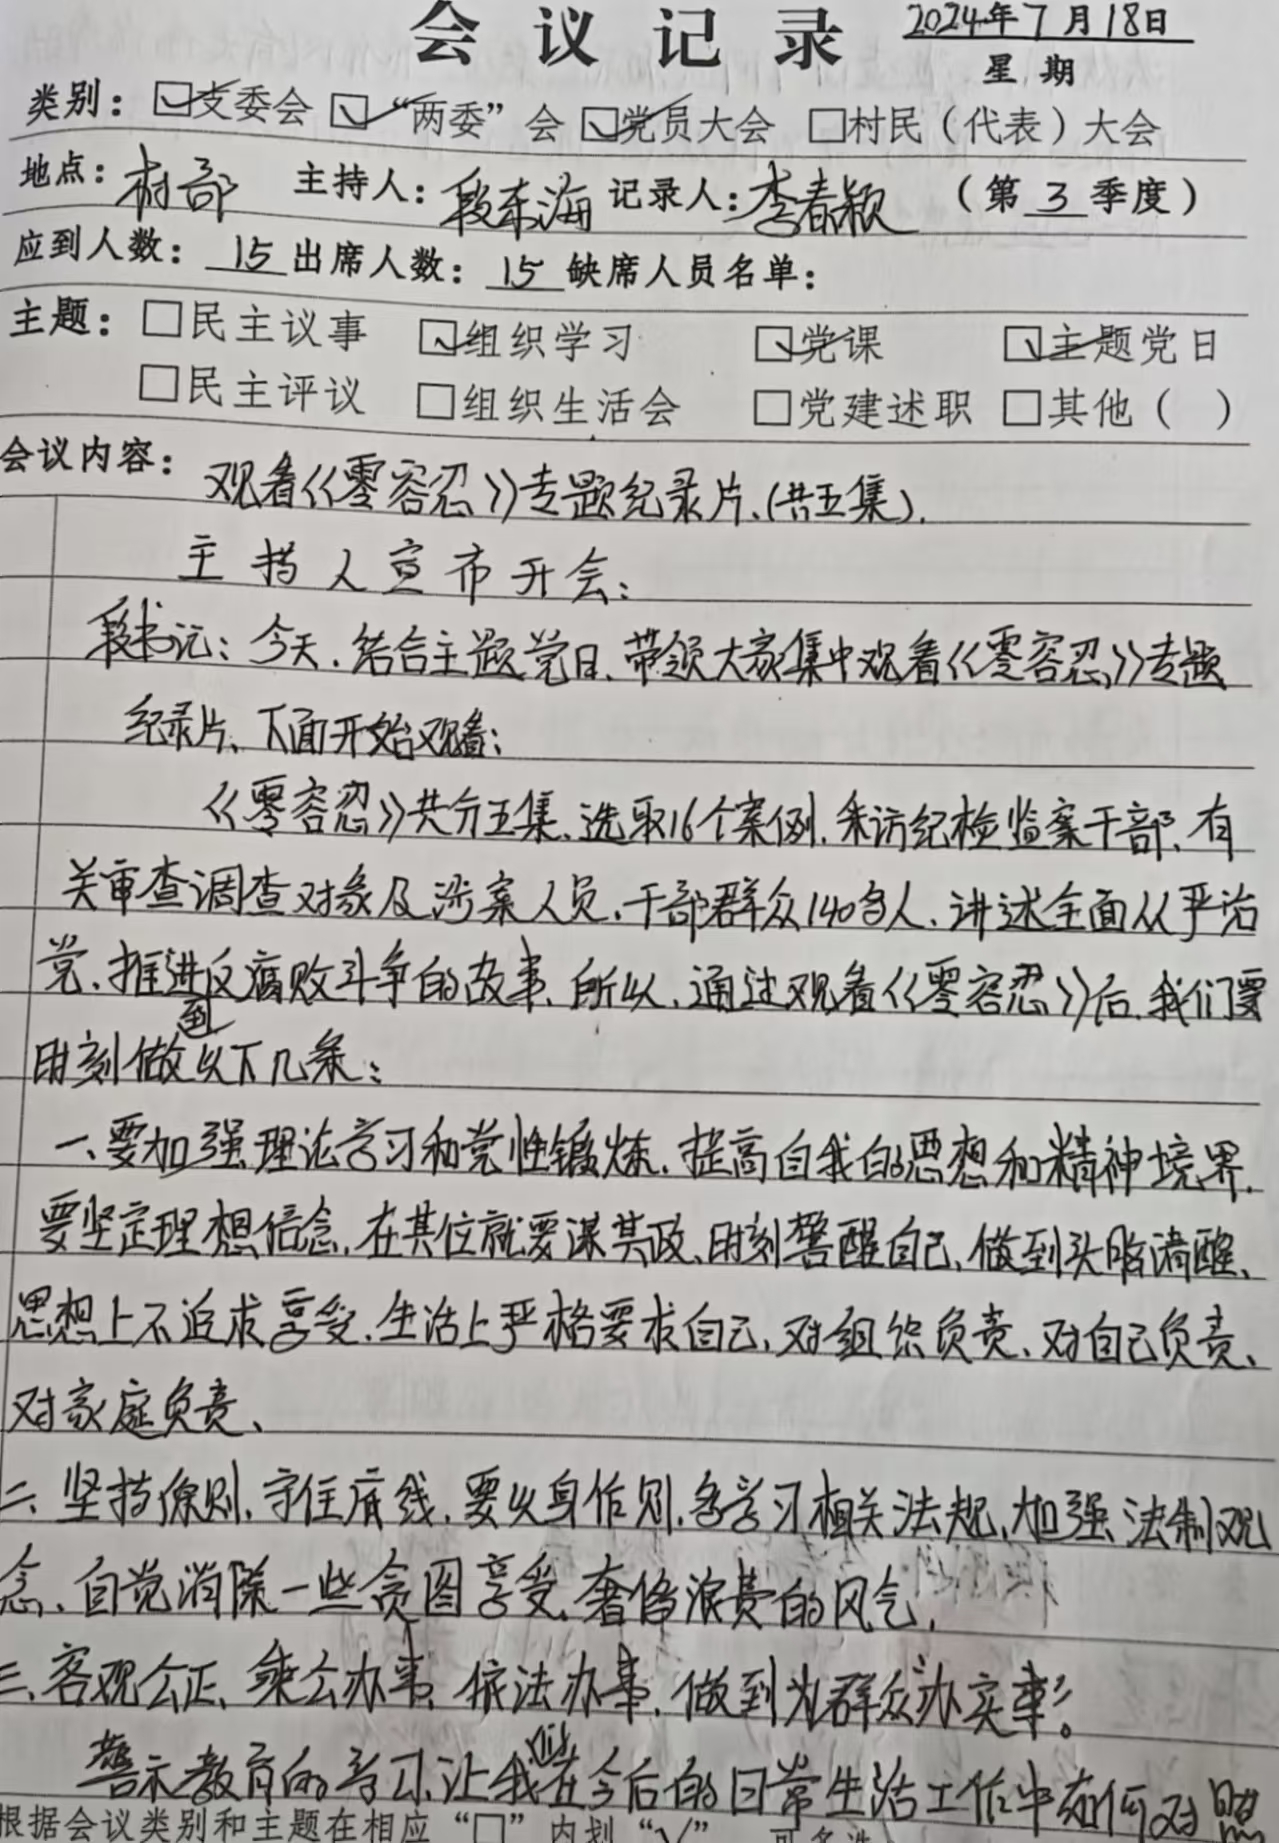 会议记录 2024年7月18日
星期
类别：☑支委会 ☑“两委”会 ☑党员大会 □村民（代表）大会
地点：村部 主持人：段东海 记录人：李春颖 （第3季度）
应到人数：15 出席人数：15 缺席人员名单：
主题：□民主议事 ☑组织学习 ☑党课 ☑主题党日
□民主评议 □组织生活会 □党建述职 □其他（ ）
会议内容：观看《零容忍》专题纪录片、(共五集).
主持人宣布开会：
段书记：今天、结合主题党日、带领大家集中观看《零容忍》专题
纪录片、下面开始观看：
《零容忍》共分五集、选取16个案例、采访纪检监察干部、有
关审查调查对象及涉案人员、干部群众140多人、讲述全面从严治
党、推进反腐败斗争的故事、所以、通过观看《零容忍》后、我们要
时刻做到以下几条：
一、要加强理论学习和党性锻炼、提高自我的思想和精神境界、
要坚定理想信念、在其位就要谋其政、时刻警醒自己、做到头脑清醒、
思想上不追求享受、生活上严格要求自己、对组织负责、对自己负责、
对家庭负责、
二、坚持原则、守住底线、要以身作则、多学习相关法规、加强法制观
念、自觉消除一些贪图享受、奢侈浪费的风气、
三、客观公正、秉公办事、依法办事、做到为群众“办实事”。
警示教育的学习、让我们在今后的日常生活工作中 对照
根据会议类别和主题在相应“□”内划“√”